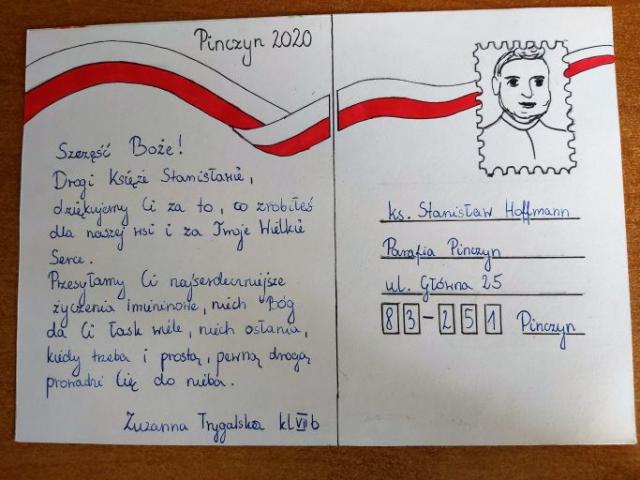 Pinczyn 2020
Szczęść Boże!
Drogi Księże Stanisławie,
dziękujemy Ci za to, co zrobiłeś
dla naszej wsi i za Twoje Wielkie
Serce.
Przesyłamy Ci najserdeczniejsze
życzenia imieninowe, niech Bóg
da Ci łask wiele, niech osłania,
kiedy trzeba i prostą, pewną drogą
prowadzi Cię do nieba.
Zuzanna Trygalska kl VIII b
ks. Stanisław Hoffmann
Parafia Pinczyn
ul. Główna 25
83-251 Pinczyn